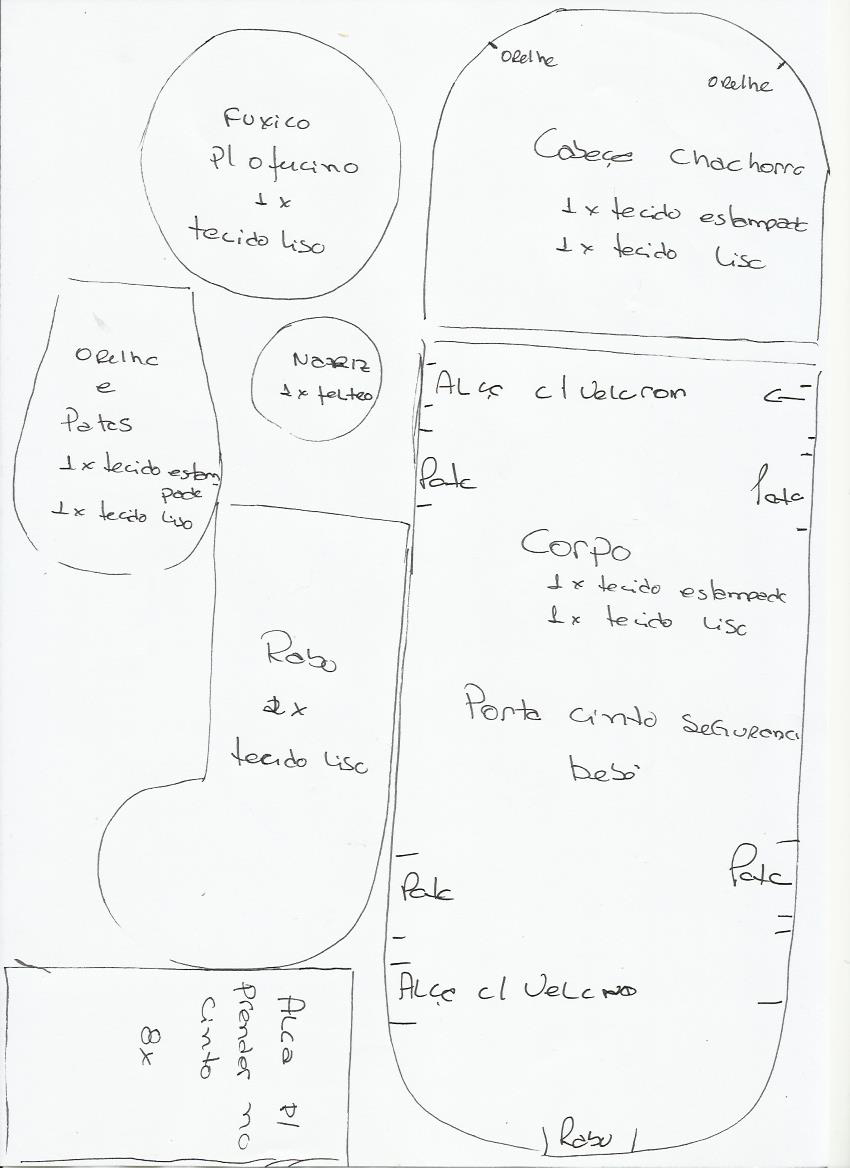 Fuxico
p/ o fucino
1x
tecido liso
orelhe
orelhe
Cabeçe Chachorro
1x tecido estampado
1x tecido liso
orelha
e
Patas
1x tecido estam
pado
1x tecido liso
Nariz
1x feltro
Alça c/ velcron
Pata
Pata
Corpo
1x tecido estampado
1x tecido liso
Porta cinto seguranca
bebê
Rabo
2x
tecido liso
Pata
Pata
Alça c/ velcro
Rabo
Alca p/
Prender no
cinto
8x